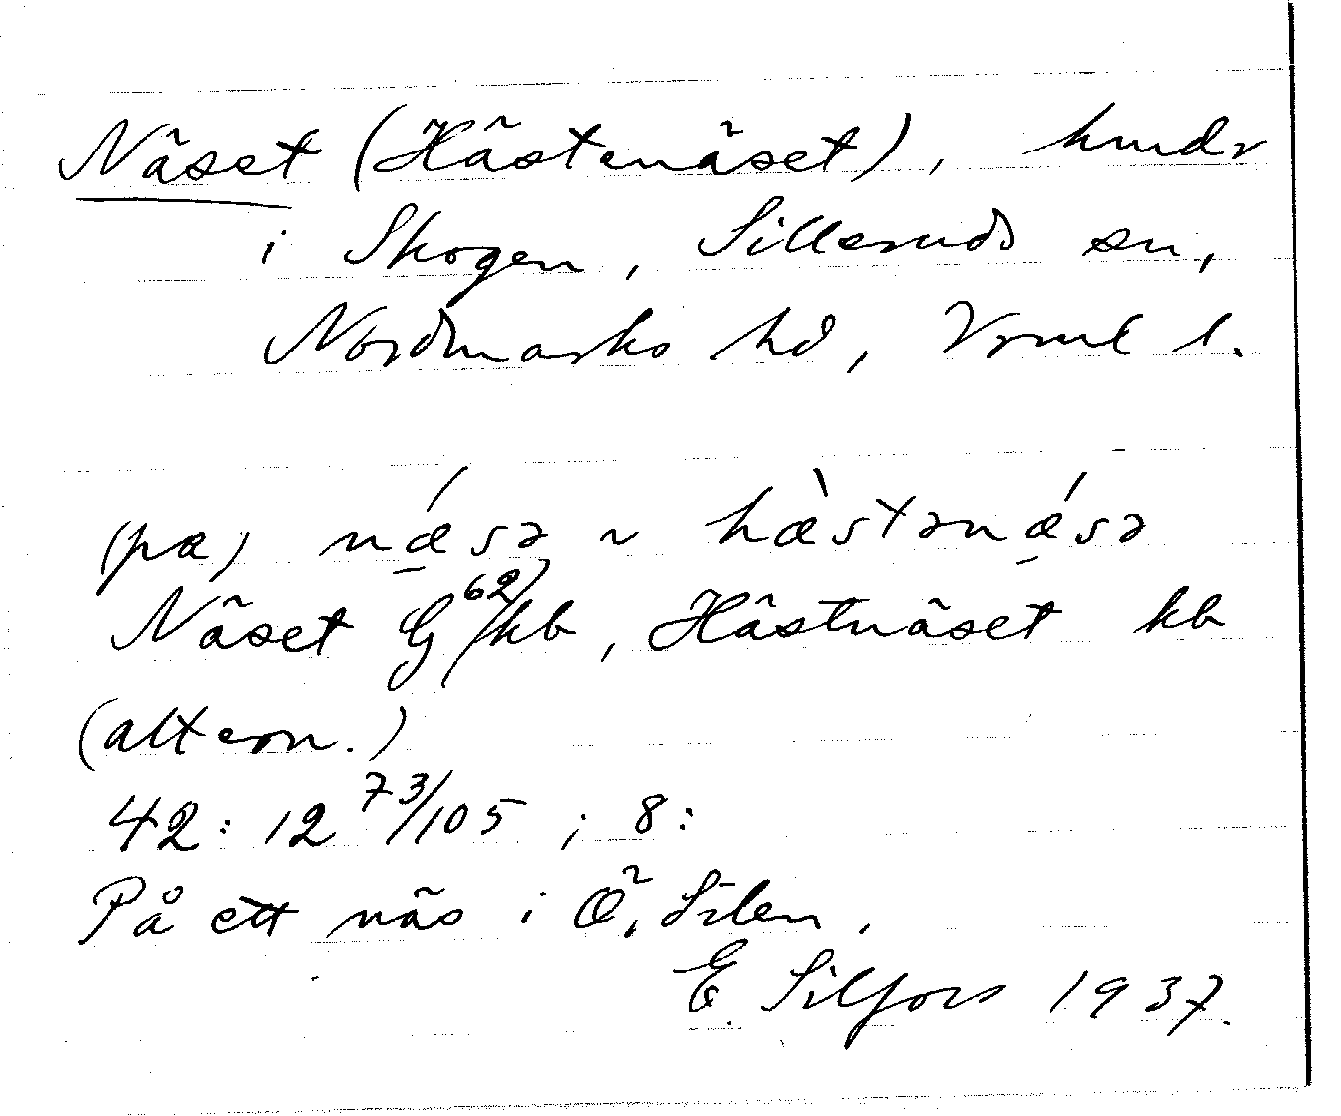 Näset (Hästenäset), hmdr
i Skogen, Silleruds sn,
Nordmarks hd, Vrml l.
(pæ) nǽ̠sə ~ hæ̀stənǽ̠sə
Näset G 62/kb, Hästnäset kb
(altern.)
42: 12 73/105 ; 8:
På ett näs i Ö. Silen.
E. Silfors 1937.